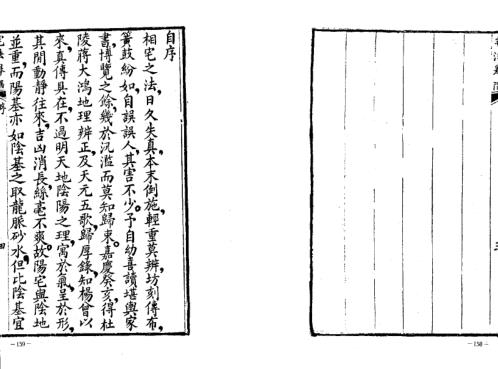 自序
相宅之法，日久失真，本末倒施，輕重莫辨，坊刻傳布，
簧鼓紛如，自誤誤人，其害不少。予自幼喜讀堪輿家
書，博覽之餘，幾於汎濫而莫知歸束。嘉慶癸亥，得杜
陵蔣大鴻地理辨正及天元五歌歸厚錄，知楊曾以
來，真傳具在，不過明天地陰陽之理，寓於氣，呈於形，
其間動靜往來，吉凶消長，絲毫不爽。故陽宅與陰地
並重，而陽基亦如陰基之取龍脈砂水，但比陰基宜
－159－
－158－